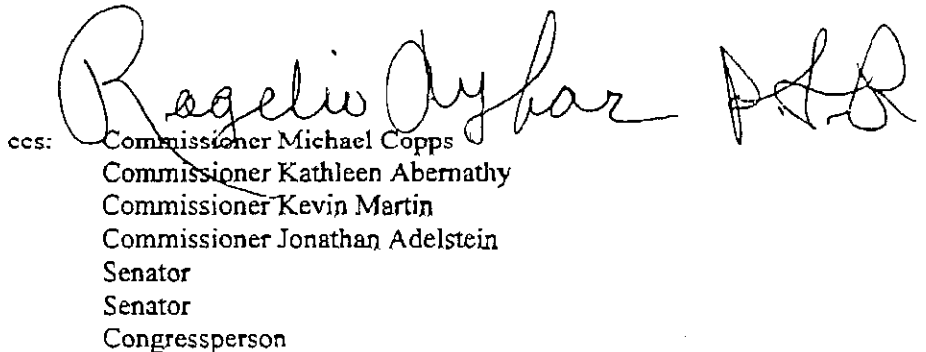 Rogelio Aybar
ccs: Commissioner Michael Copps
Commissioner Kathleen Abernathy
Commissioner Kevin Martin
Commissioner Jonathan Adelstein
Senator
Senator
Congressperson